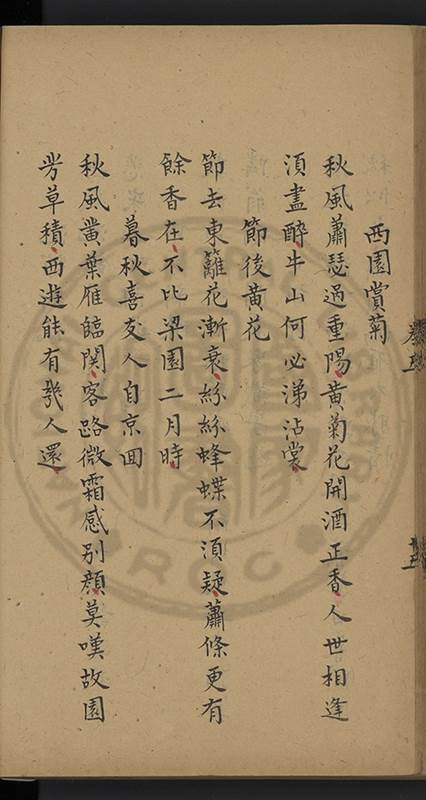 西園賞菊
秋風蕭瑟過重陽黃菊花開酒正香人世相逢
須盡醉牛山何必涕沾裳
節後黃花
節去東籬花漸衰紛紛蜂蝶不須疑蕭條更有
餘香在不比梁園二月時
暮秋喜友人自京回
秋風黃葉雁臨関客路微霜感別顏莫嘆故園
芳草積西遊能有幾人還